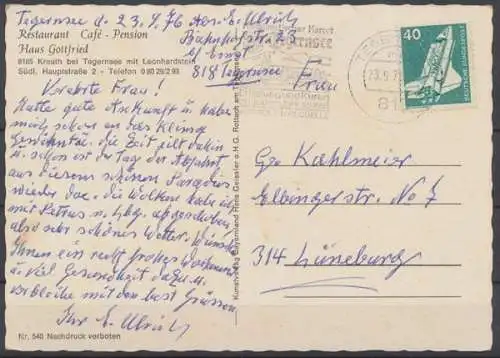 Tegernsee d. 23.9.76 Abs. E. Ulrich
Bahnhofstr. 23
b/ Ernst
818 Tegernsee
Restaurant Café - Pension
Haus Gottfried
8185 Kreuth bei Tegernsee mit Leonhardstein
Südl. Hauptstraße 2 - Telefon 0 80 29/2 93
Verehrte Frau!
Hatte gute Ankunft u. habe
mich schon an das Klima
gewöhnt. die Zeit eilt dahin
u. schon ist der Tag der Abfahrt
aus diesem schönen Paradies
wieder da. die Wolken habe ich
mit Petrus
also sehr schönes Wetter. Wünsche
Ihnen ein recht frohes Wochenende
u. viel Gesundheit dazu u.
verbleibe mit den best. Grüssen
Ihr E. Ulrich
Nr. 540 Nachdruck verboten
TEGERNSEE
23.9.7
40
DEUTSCHE BUNDESPOST
Frau
Ge Kahlmeier
Elbingerstr. No 7
314 Lüneburg